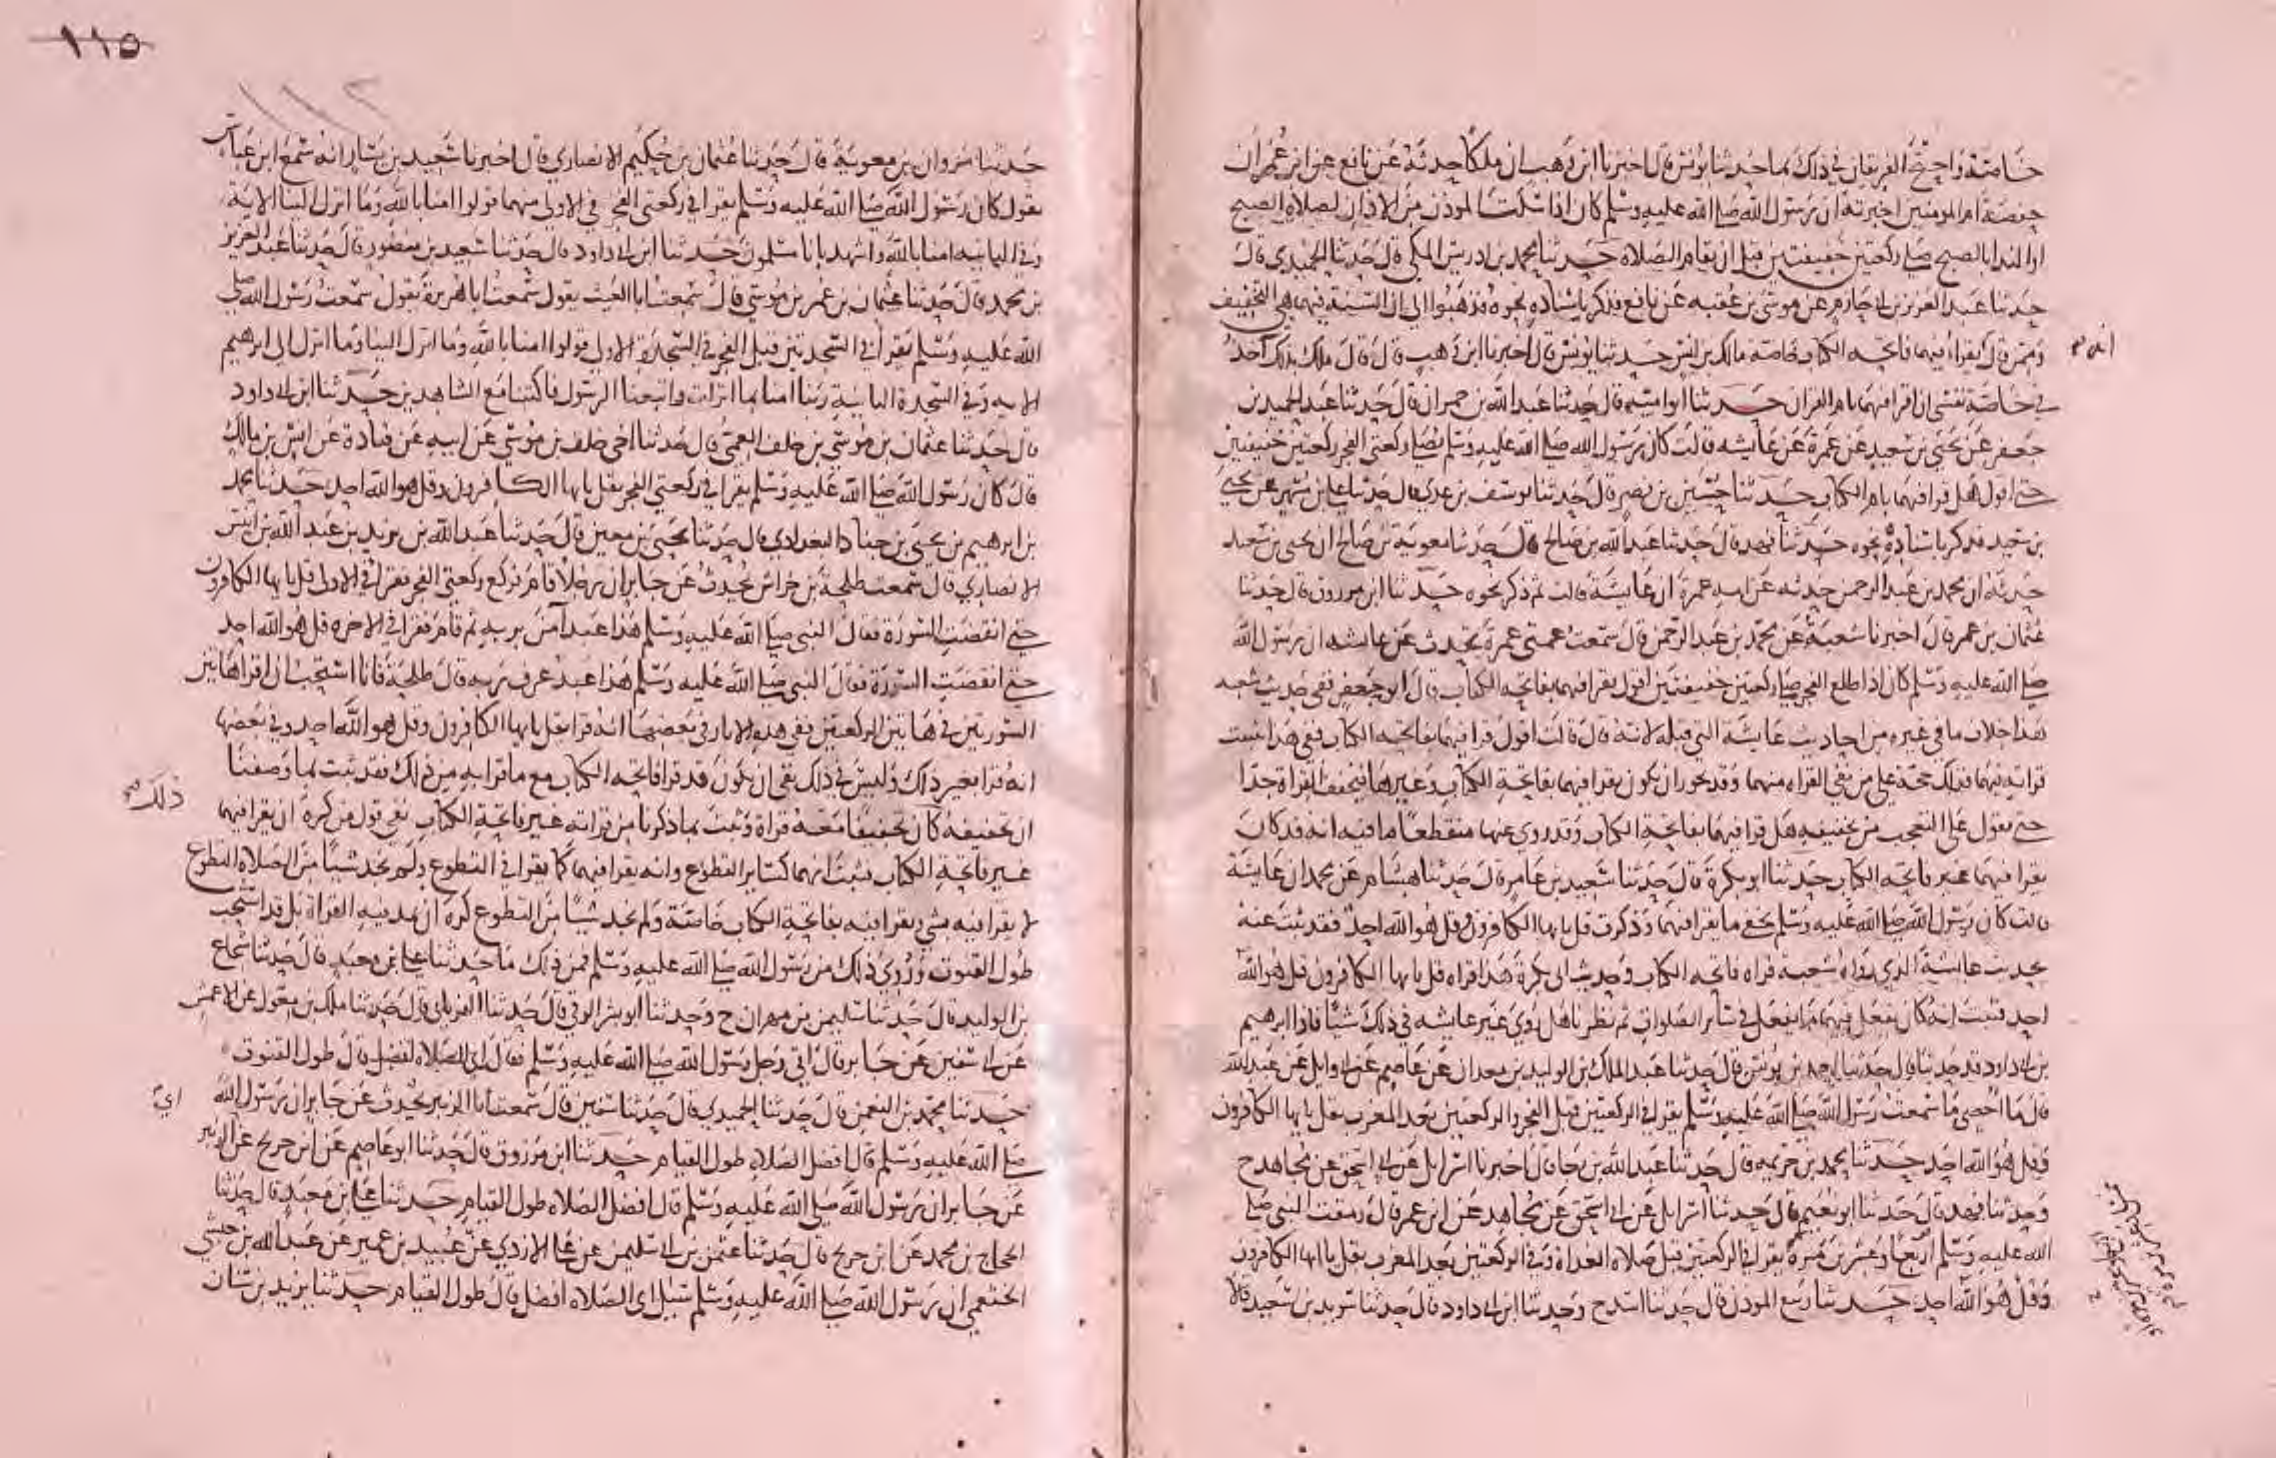 خاصة واحتج الفريقان في ذلك بما حدثنا يونس قال اخبرنا ابن وهب ان ملكا حدثه عن نافع عن ابن عمر ان
حفصة ام المومنين اخبرته ان رسول الله صلى الله عليه وسلم كان اذا سكت الموذن من الاذان لصلاة الصبح
او النداء بالصبح صلى ركعتين خفيفتين قبل ان تقام الصلاة حدثنا محمد بن ادريس المكي قال حدثنا الحميدي قال
حدثنا عبد العزيز بن ابي حازم عن موسى بن عقبه عن نافع فذكر باسناده نحوه فذهبوا الى ان السنة فيهما هي التخفيف
وممن قال يقرا فيهما فاتحه الكتاب خاصة مالك بن انس حدثنا يونس قال اخبرنا ابن وهب قال قال ملك بذلك آخذ
انه
في خاصة نفسي ان اقرا فيهما بام القران حدثنا ابو اميه قال حدثنا عبد الله بن حمران قال حدثنا عبد الحميد بن
جعفر عن يحيى بن سعيد عن عمرة عن عايشه قالت كان رسول الله صلى الله عليه وسلم يصلي ركعتي الفجر ركعتين خفيفتين
حتى اقول هل قرا فيهما بام الكتاب حدثنا حسين بن نصر قال حدثنا يوسف بن عدي قال حدثنا علي بن مسهر عن يحيى
بن سعيد فذكر باسناده نحوه حدثنا فهد قال حدثنا عبد الله بن صالح قال حدثنا معوية بن صالح ان يحيى بن سعيد
حدثه ان محمد بن عبد الرحمن حدثه عن امه عمرة ان عايشة قالت ثم ذكر نحوه حدثنا ابن مرزوق قال حدثنا
عثمان بن عمر قال اخبرنا شعبة عن محمد بن عبد الرحمن قال سمعت عمتي عمرة تحدث عن عايشه ان رسول الله
صلى الله عليه وسلم كان اذا طلع الفجر صلى ركعتين خفيفتين اقول يقرا فيهما بفاتحه الكتاب قال ابو جعفر ففي حديث شعبه
هذا خلاف ما في غيره من احاديث عايشة التي قبله لانه قال قالت اقول قرا فيهما بفاتحه الكتاب ففي هذا تثبت
قراته فيهما فذلك حجة على من نفى القراه منهما وقد يجوز ان يكون يقرا فيهما بفاتحة الكتاب وغيرها فيخفف القراة جدا
حتى تقول على التعجب من تخفيفه هل قرا فيهما بفاتحة الكتاب وقد روي عنها منقطعا ما فيه انه قد كان
يقرا فيهما غير فاتحه الكتاب حدثنا ابو بكرة قال حدثنا سعيد بن عامر قال حدثنا هشام عن محمد ان عايشة
قالت كان رسول الله صلى الله عليه وسلم يخفي ما يقرا فيهما وذكرت قل يايها الكافرون وقل هو الله احد فقد ثبت عنه
بحديث عايشة الذي رواه شعبة قراه فاتحه الكتاب وحديث ابي بكرة هذا قراه قل يايها الكافرون قل هو الله
احد فثبت انه كان يفعل فيهما ما يفعل في ساير الصلوات ثم نظرنا هل روي غير عايشه في ذلك شيئا فاذا ابرهيم
بن ابي داود قد حدثنا قال حدثنا احمد بن يونس قال حدثنا عبد الملك بن الوليد بن معدان عن عاصم عن ابي وايل عن عبد الله
قال ما احصي ما سمعت رسول الله صلى الله عليه وسلم يقرا في الركعتين قبل الفجر والركعتين بعد المغرب بقل يايها الكافرون
وقل هو الله احد حدثنا محمد بن خزيمه قال حدثنا عبد الله بن رجا قال اخبرنا اسرايل عن ابي اسحق عن مجاهد ح
وحدثنا فهد قال حدثنا ابو نعيم قال حدثنا اسرايل عن ابي اسحق عن مجاهد عن ابن عمر قال رمقت النبي صلى
الله عليه وسلم اربعا وعشرين مرة يقرا في الركعتين قبل صلاه الغداة وفي الركعتين بعد المغرب بقل ياايها الكافرون
وقل هو الله احد حدثنا ربيع الموذن قال حدثنا اسد ح وحدثنا ابن ابي داود قال حدثنا سويد بن سعيد قالا
١١٥
١١٢
حدثنا مروان بن معوية قال حدثنا عثمان بن حكيم الانصاري قال اخبرنا سعيد بن يسار انه سمع ابن عباس
يقول كان رسول الله صلى الله عليه وسلم يقرا في ركعتي الفجر في الاولى منهما قولوا امنا بالله وما انزل الينا الاية
وفي الثانيه امنا بالله واشهد بانا مسلمون حدثنا ابن ابي داود قال حدثنا سعيد بن منصور قال حدثنا عبد العزيز
بن محمد قال حدثنا عثمان بن عمر بن موسى قال سمعت ابا الغيث يقول سمعت ابا هريرة يقول سمعت رسول الله صلى
الله عليه وسلم يقرا في السجدتين قبل الفجر في السجدة الاولى قولوا امنا بالله وما انزل الينا وما انزل الى ابرهيم
الايه وفي السجدة الثانية ربنا امنا بما انزلت واتبعنا الرسول فاكتبنا مع الشاهدين حدثنا ابن ابي داود
قال حدثنا عثمان بن موسى بن خلف العمي قال حدثنا اخي خلف بن موسى عن ابيه عن قتادة عن انس بن مالك
قال كان رسول الله صلى الله عليه وسلم يقرا في ركعتي الفجر بقل يايها الكافرون وقل هو الله احد حدثنا محمد
بن ابرهيم بن يحيى بن جناد البغدادي قال حدثنا يحيى بن معين قال حدثنا عبد الله بن يزيد بن عبد الله بن انيس
الانصاري قال سمعت طلحة بن خراش يحدث عن جابر ان رجلا قام فركع ركعتي الفجر فقرا في الاولى قل يايها الكافرون
حتى انقضت السورة فقال النبي صلى الله عليه وسلم هذا عبد آمن بربه ثم قام فقرا في الاخره قل هو الله احد
حتى انقضت السورة فقال النبي صلى الله عليه وسلم هذا عبد عرف ربه قال طلحة فانا استحب ان اقرا هاتين
السورتين في هاتين الركعتين ففي هذه الاثار في بعضها انه قرا بقل يايها الكافرون وقل هو الله احد وفي بعضها
انه قرا بغير ذلك وليس في ذلك نفي ان يكون قد قرا فاتحه الكتاب مع ما قرا به من ذلك فقد ثبت بما وصفنا
ان تخفيفه كان تخفيفا معه قراة وثبت بما ذكرنا من قراته غير فاتحة الكتاب نفي قول من كره ان يقرا فيهما
ذلك
غير فاتحة الكتاب فثبت انهما كساير التطوع وانه يقرا فيهما كما يقرا في التطوع ولم نجد شيئا من الصلاة التطوع
لا يقرا فيه بشي ويقرا فيه بفاتحة الكتاب خاصة ولم نجد شيئا من التطوع كره ان يمد فيه القراة بل قد استحب
طول القنوت وروي ذلك من رسول الله صلى الله عليه وسلم فمن ذلك ما حدثنا علي بن معبد قال حدثنا شجاع
بن الوليد قال حدثنا سليمن بن مهران ح وحدثنا ابو بشر الرقي قال حدثنا الفريابي قال حدثنا ملك بن مغول عن الاعمش
عن ابي سفين عن جابر قال اتى رجل رسول الله صلى الله عليه وسلم فقال اي الصلاة افضل قال طول القنوت
حدثنا محمد بن النعمن قال حدثنا الحميدي قال حدثنا سفين قال سمعت ابا الزبير يحدث عن جابر ان رسول الله
اي
صلى الله عليه وسلم قال افضل الصلاة طول القيام حدثنا ابن مرزوق قال حدثنا ابو عاصم عن ابن جريج عن ابي الزبير
عن جابر ان رسول الله صلى الله عليه وسلم قال افضل الصلاة طول القيام حدثنا علي بن معبد قال حدثنا
الحجاج بن محمد عن ابن جريج قال حدثنا عثمن بن ابي سليمن عن علي الازدي عن عبيد بن عمير عن عبد الله بن حبشي
الخثعمي ان رسول الله صلى الله عليه وسلم سئل اي الصلاة افضل قال طول القيام حدثنا يزيد بن سنان